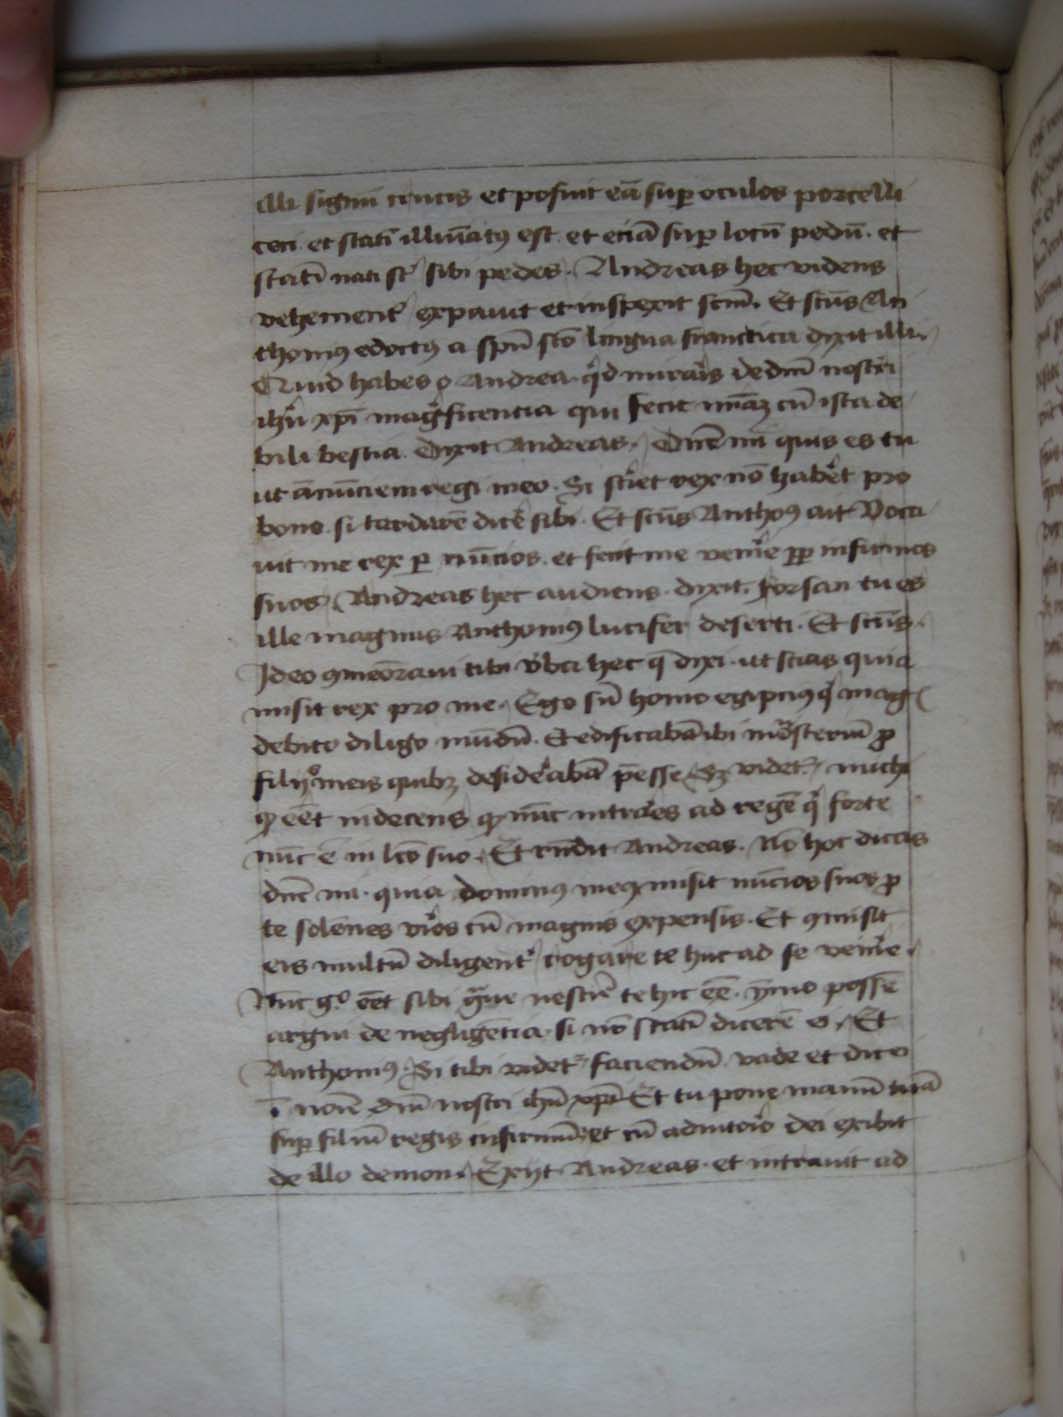 illi signū crucis et posuit eā suꝑ oculos porcelli
ceci et statī illūīatꝰ est et eciā suꝑ locū pedū. et
statī nati sūt sibi pedes. Andreas hec videns
vehementˀ expauit et inspexit scm̄. Et sctūs An
thoniꝰ edoctꝰ a spū sco lingua francica dixit illi.
Quid habes o Andrea. qͥd miraris de dn̄i nostri
ihū xpī magͥficentia qui fecit mīaꝫ cū ista de
bili bestia. Dixit Andreas. Dn̄e mi quis es tu
ut ānūciem regi meo. Si sciret rex nō haberet pro
bono. si tardarē dicere sibi. Et sctūs Anthoꝰ ait Voca
uit me rex ꝑ nūcios. et fecit me venire ꝓp̄ infirmos
suos. Andreas hec audiens. dixit. Forsan tu es
ille magnus Anthoniꝰ lucifer deserti. Et sctūs.
Ideo ꝯmeōraui tibi vˀba hec q̄ dixi. ut scias quia
misit rex pro me. Ego sū homo egipciꝰ qͥ mag
debito diligo mūdū. Et edificabā ibi mōsteriū ꝓ
filijs meis quibꝫ desiderabā p̄esse. Sꝫ videtˀ michi
ꝙ eēt indecens ꝙ nūc intrares ad regē qͥ forte
nūc ē in lcō suo. Et rn̄dit Andreas. Nō hoc dicas
dn̄e mi. quia dominꝰ meꝰ misit nūcios suos ꝓ
te solēnes viros cū magnis expensis. Et ꝯmisit
eis multū diligentˀ rogare te huc ad se venire.
Nūc gͦ eēt sibi gͣue nescire te hic eē. ymo possē
argui de negligētia. si nō statī dicerē ei. Et
Anthoniꝰ. Si tibi videtˀ faciendū vade et dic ei
ī noīe dn̄i nostri ihū xpī Et tu pone manū tuā
suꝑ filiū regis infirmū et cū adiutorio dei exibit
de illo demon. Exijt Andreas. et intrauit ad